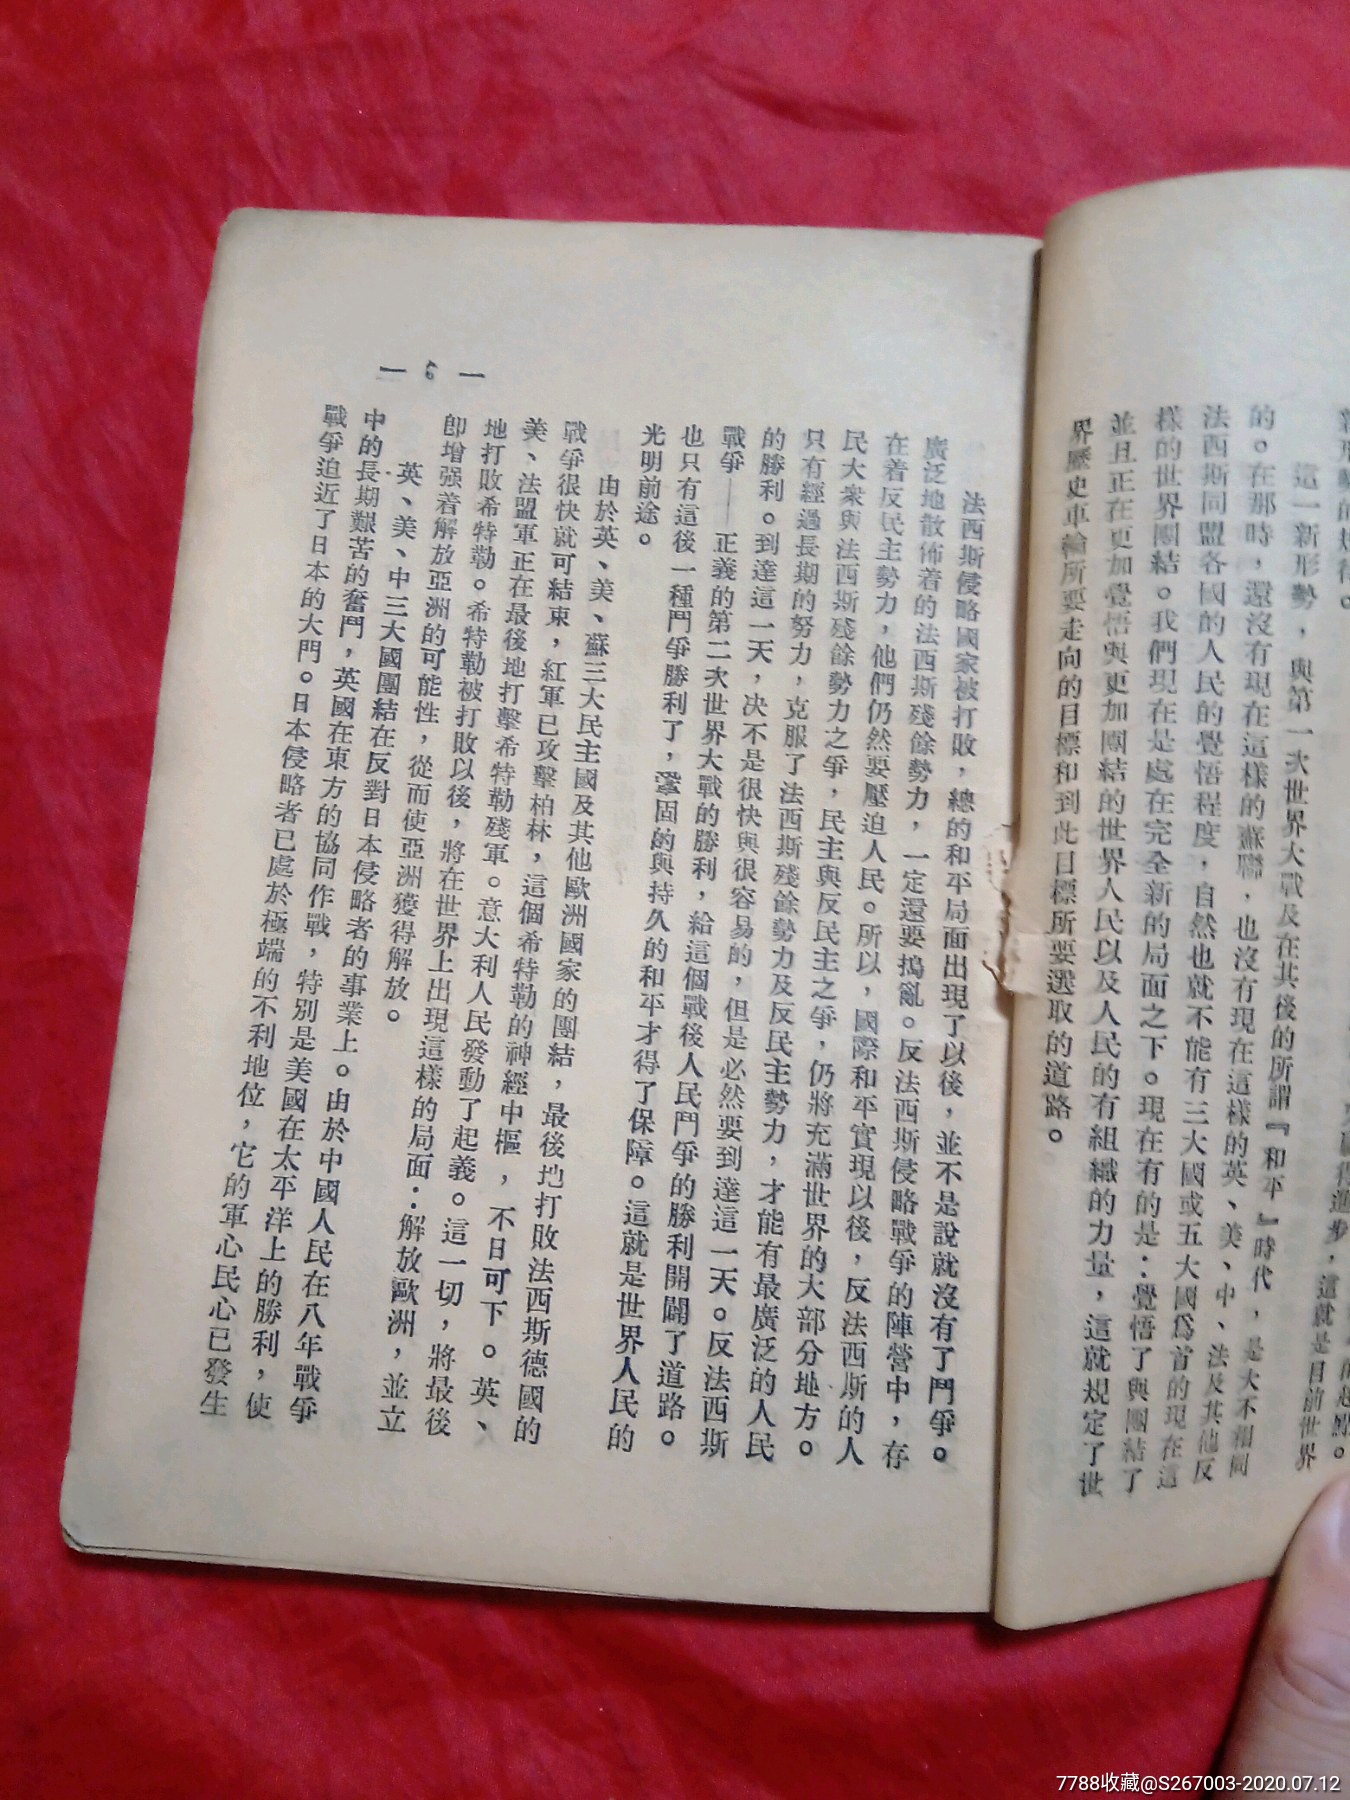 這一新形勢，與第一次世界大戰及在其後的所謂『和平』時代，是大不相同
的。在那時，還沒有現在這樣的蘇聯，也沒有現在這樣的英、美、中、法及其他反
法西斯同盟各國的人民的覺悟程度，自然也就不能有三大國或五大國爲首的現在這
樣的世界團結。我們現在是處在完全新的局面之下。現在有的是：覺悟了與團結了
並且正在更加覺悟與更加團結的世界人民以及人民的有組織的力量，這就規定了世
界歷史車輪所要走向的目標和到此目標所要選取的道路。
法西斯侵略國家被打敗，總的和平局面出現了以後，並不是說就沒有了鬥爭。
廣泛地散佈着的法西斯殘餘勢力，一定還要搗亂。反法西斯侵略戰爭的陣營中，存
在着反民主勢力，他們仍然要壓迫人民。所以，國際和平實現以後，反法西斯的人
民大衆與法西斯殘餘勢力之爭，民主與反民主之爭，仍將充滿世界的大部分地方。
只有經過長期的努力，克服了法西斯殘餘勢力及反民主勢力，才能有最廣泛的人民
的勝利。到達這一天，决不是很快與很容易的，但是必然要到達這一天。反法西斯
戰爭——正義的第二次世界大戰的勝利，給這個戰後人民鬥爭的勝利開闢了道路。
也只有這後一種鬥爭勝利了，鞏固的與持久的和平才得了保障。這就是世界人民的
光明前途。
由於英、美、蘇三大民主國及其他歐洲國家的團結，最後地打敗法西斯德國的
戰爭很快就可結束，紅軍已攻擊柏林，這個希特勒的神經中樞，不日可下。英、
美、法盟軍正在最後地打擊希特勒殘軍。意大利人民發動了起義。這一切，將最後
地打敗希特勒。希特勒被打敗以後，將在世界上出現這樣的局面：解放歐洲，並立
卽增强着解放亞洲的可能性，從而使亞洲獲得解放。
英、美、中三大國團結在反對日本侵略者的事業上。由於中國人民在八年戰爭
中的長期艱苦的奮鬥，英國在東方的協同作戰，特別是美國在太平洋上的勝利，使
戰爭迫近了日本的大門。日本侵略者已處於極端的不利地位，它的軍心民心已發生
— 3 —
7788收藏@S267003-2020.07.12